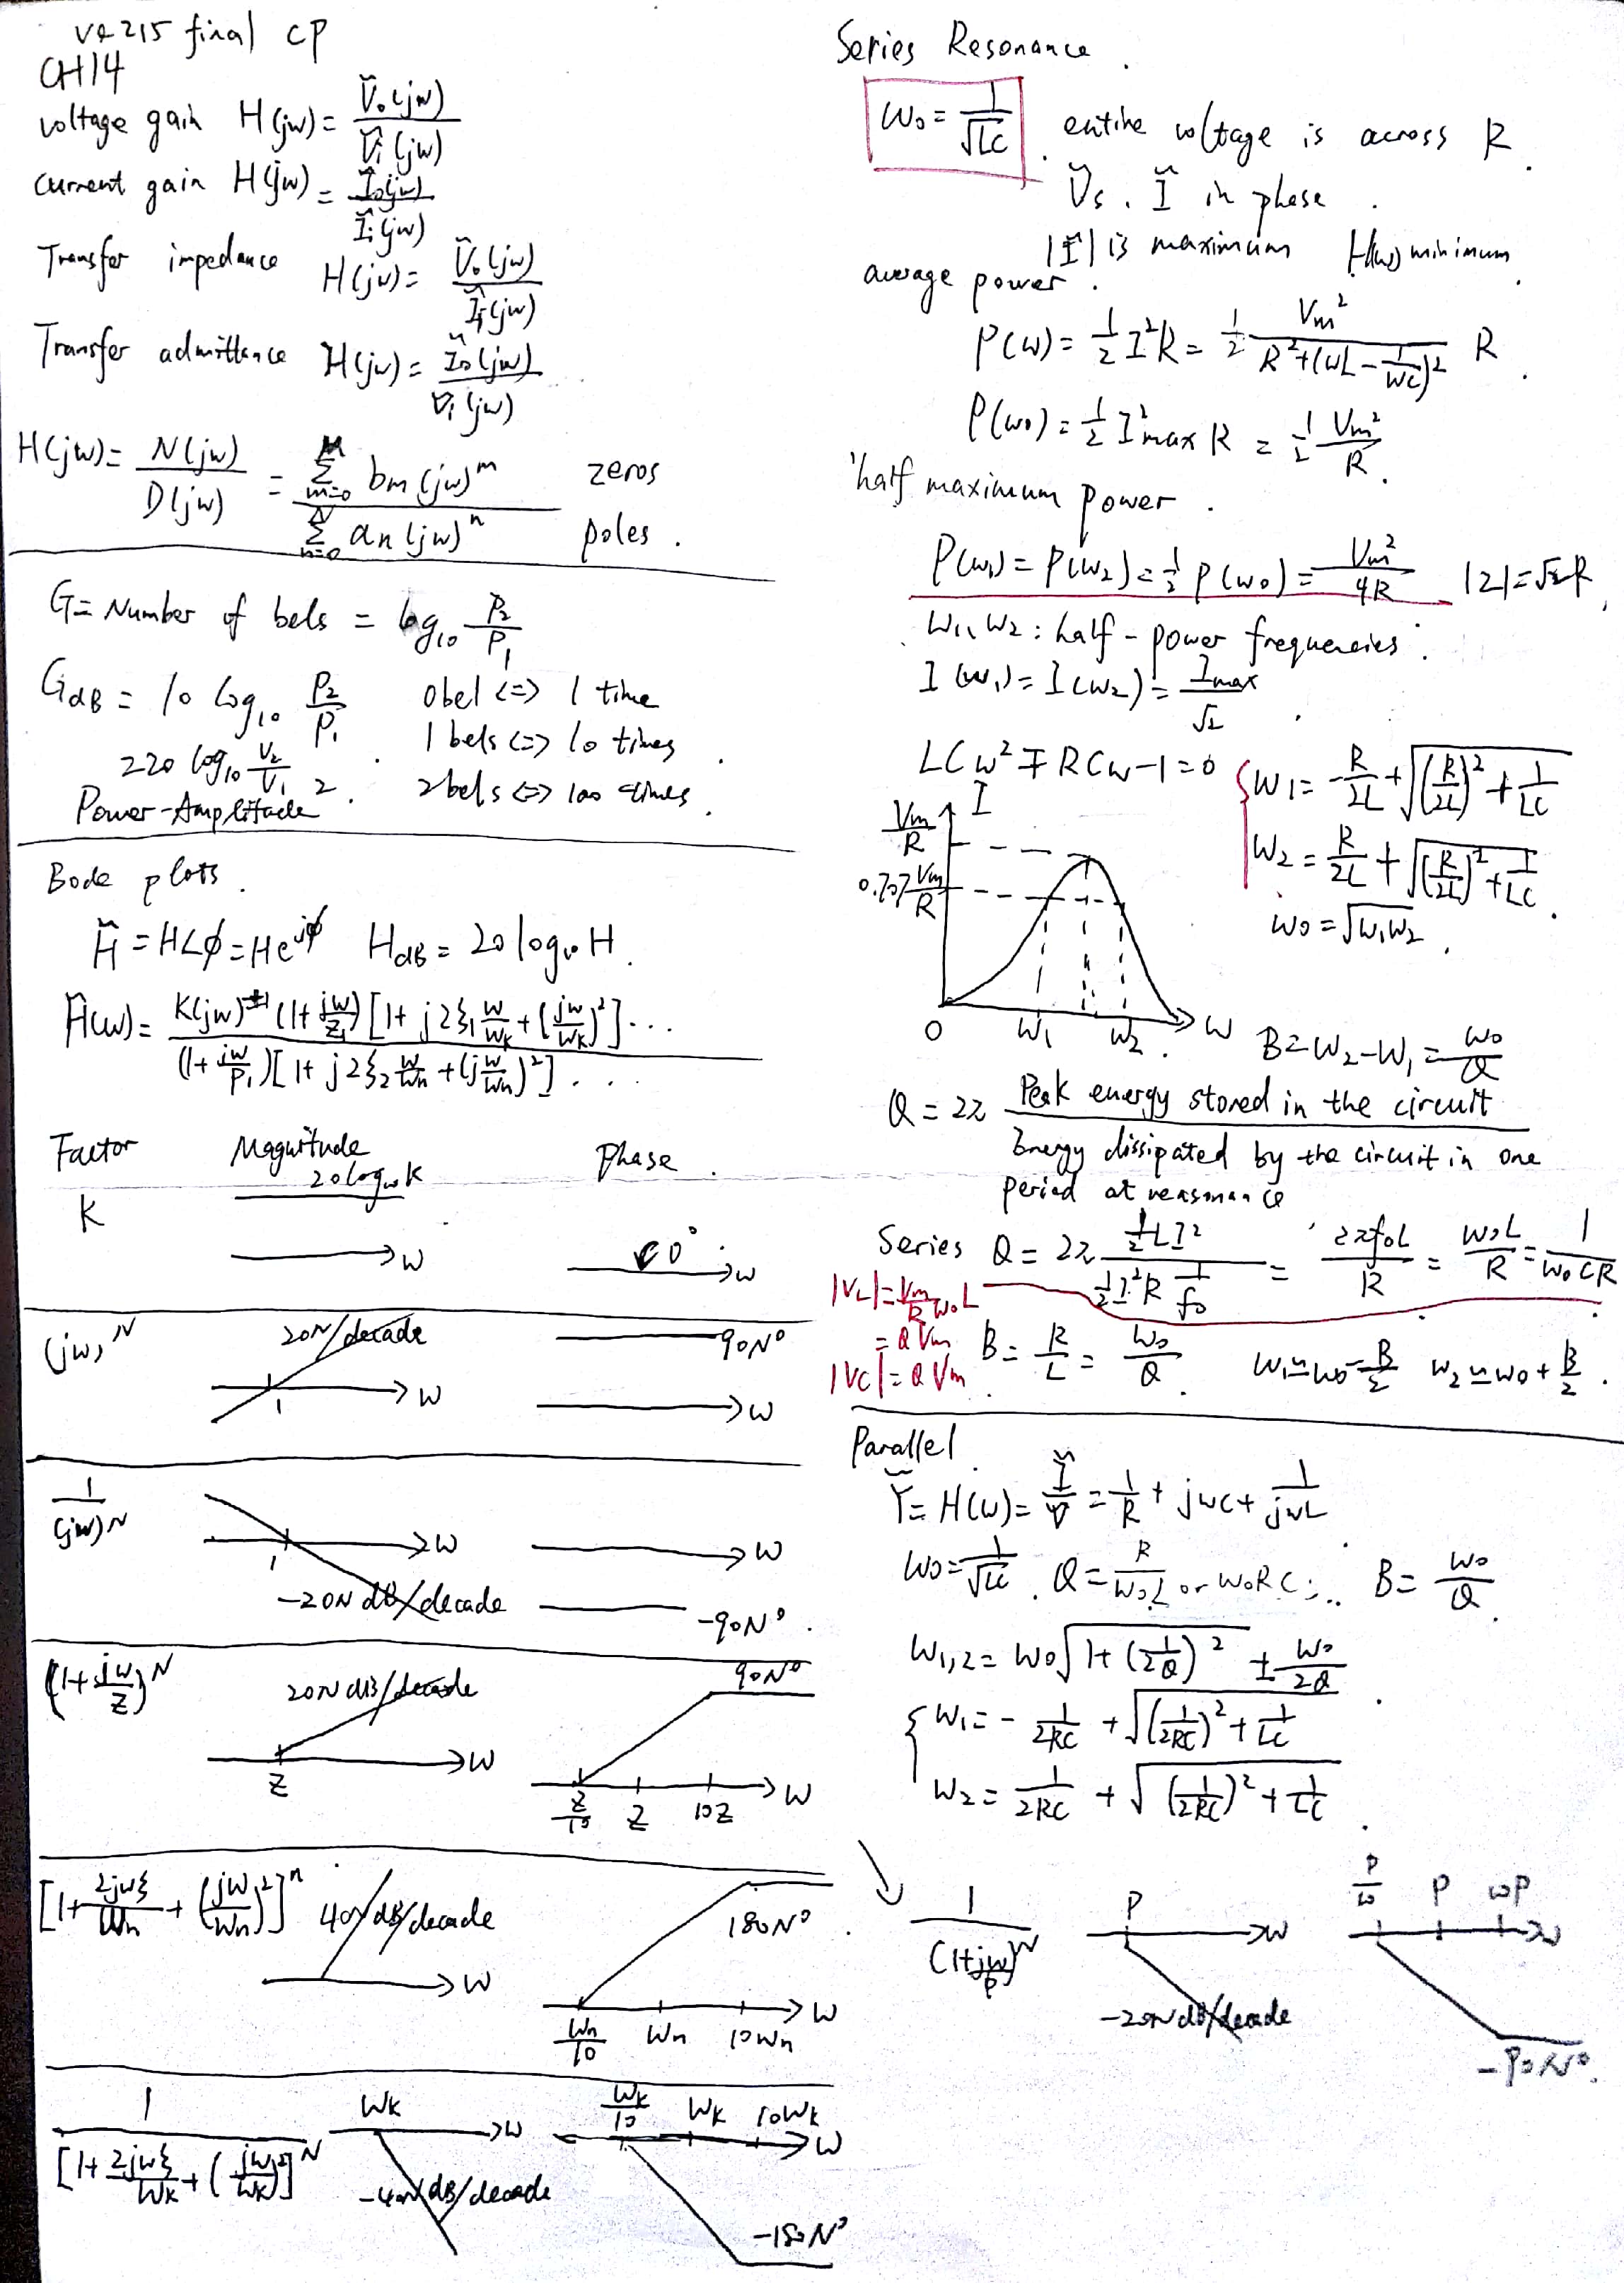 ve215 final CP
CH14
voltage gain H(jw) = Ṽo(jw) / Ṽi(jw)
current gain H(jw) = Ĩo(jw) / Ĩi(jw)
Transfer impedance H(jw) = Ṽo(jw) / Ĩi(jw)
Transfer admittance H(jw) = Ĩo(jw) / Ṽi(jw)
H(jw) = N(jw) / D(jw) = Σ_{m=0}^{M} bm (jw)^m / Σ_{n=0}^{N} an (jw)^n zeros poles.
G = Number of bels = log10 P2/P1
GdB = 10 log10 P2/P1 0 bel <=> 1 time
= 20 log10 V2/V1 . 1 bels <=> 10 times
Power-Amplitude² . 2 bels <=> 100 times.
Bode plots.
H̃ = H∠ϕ = He^jϕ HdB = 20 log10 H.
H̃(w) = K(jw)^±1 (1+jw/z1) [1+ j2ξ1 w/wk + (jw/wk)²] ... / (1+jw/p1)[1+ j2ξ2 w/wn + (jw/wn)²] ...
Factor Magnitude Phase.
K 20log10K w 0° w
(jw)^N 20N/decade 1 w 90N° w
1/(jw)^N 1 w -20N dB/decade w -90N°.
(1+jw/z)^N 20N dB/decade z w 90N° z/10 z 10z w
[1+ 2jwξ/wn + (jw/wn)²]^n 40N dB/decade w 180N° wn/10 wn 10wn w
1/[1+ 2jwξ/wk + (jw/wk)²]^N wk w -40N dB/decade wk/10 wk 10wk w -180N°
Series Resonance.
w0 = 1/√LC . entire voltage is across R.
Ṽs, Ĩ in phase.
|Ĩ| is maximum H(w) minimum.
average power.
P(w) = 1/2 I²R = 1/2 Vm² / (R²+(wL-1/wC)²) R.
P(w0) = 1/2 I²max R = 1/2 Vm²/R.
half maximum power.
P(w1) = P(w2) = 1/2 P(w0) = Vm²/4R . |Z| = √2 R.
w1, w2 : half-power frequencies.
I(w1) = I(w2) = Imax/√2 .
LCw² ∓ RCw - 1 = 0 { w1 = -R/2L + √((R/2L)² + 1/LC)
w2 = R/2L + √((R/2L)² + 1/LC).
w0 = √w1w2 .
I
Vm/R
0.707 Vm/R
0 w1 w2 w
B = w2 - w1 = w0/Q
Q = 2π Peak energy stored in the circuit
Energy dissipated by the circuit in one
period at reasonance
Series Q = 2π (1/2 LI²) / (1/2 I²R 1/f0) = 2πf0L/R = w0L/R = 1/w0CR
|VL| = Vm/R w0L
= QVm B = R/L = w0/Q . w1≃w0-B/2 w2≃w0+B/2 .
|VC| = QVm
Parallel
Ỹ = H(w) = Ĩ/Ṽ = 1/R + jwC + 1/jwL
w0 = 1/√LC . Q = R/w0L or w0RC . B = w0/Q .
w1,2 = w0√(1+(1/2Q)²) ± w0/2Q .
{ w1 = - 1/2RC + √((1/2RC)² + 1/LC)
w2 = 1/2RC + √((1/2RC)² + 1/LC) .
1/(1+jw/p)^N p w -20N dB/decade p/10 p 10p w -90N°.